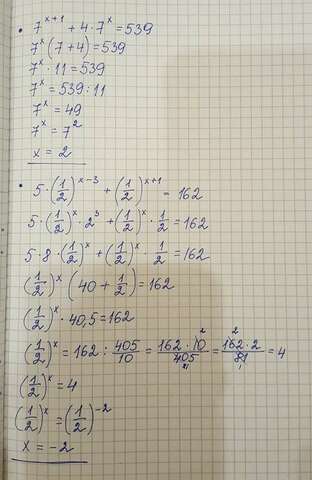 • 7^(x+1) + 4·7^x = 539
7^x (7+4) = 539
7^x · 11 = 539
7^x = 539 : 11
7^x = 49
7^x = 7^2
x = 2
• 5·(1/2)^(x-3) + (1/2)^(x+1) = 162
5·(1/2)^x · 2^3 + (1/2)^x · 1/2 = 162
5·8·(1/2)^x + (1/2)^x · 1/2 = 162
(1/2)^x (40 + 1/2) = 162
(1/2)^x · 40,5 = 162
(1/2)^x = 162 : 405/10 = 162·10/405 = 162·2/81 = 4
(1/2)^x = 4
(1/2)^x = (1/2)^(-2)
x = -2